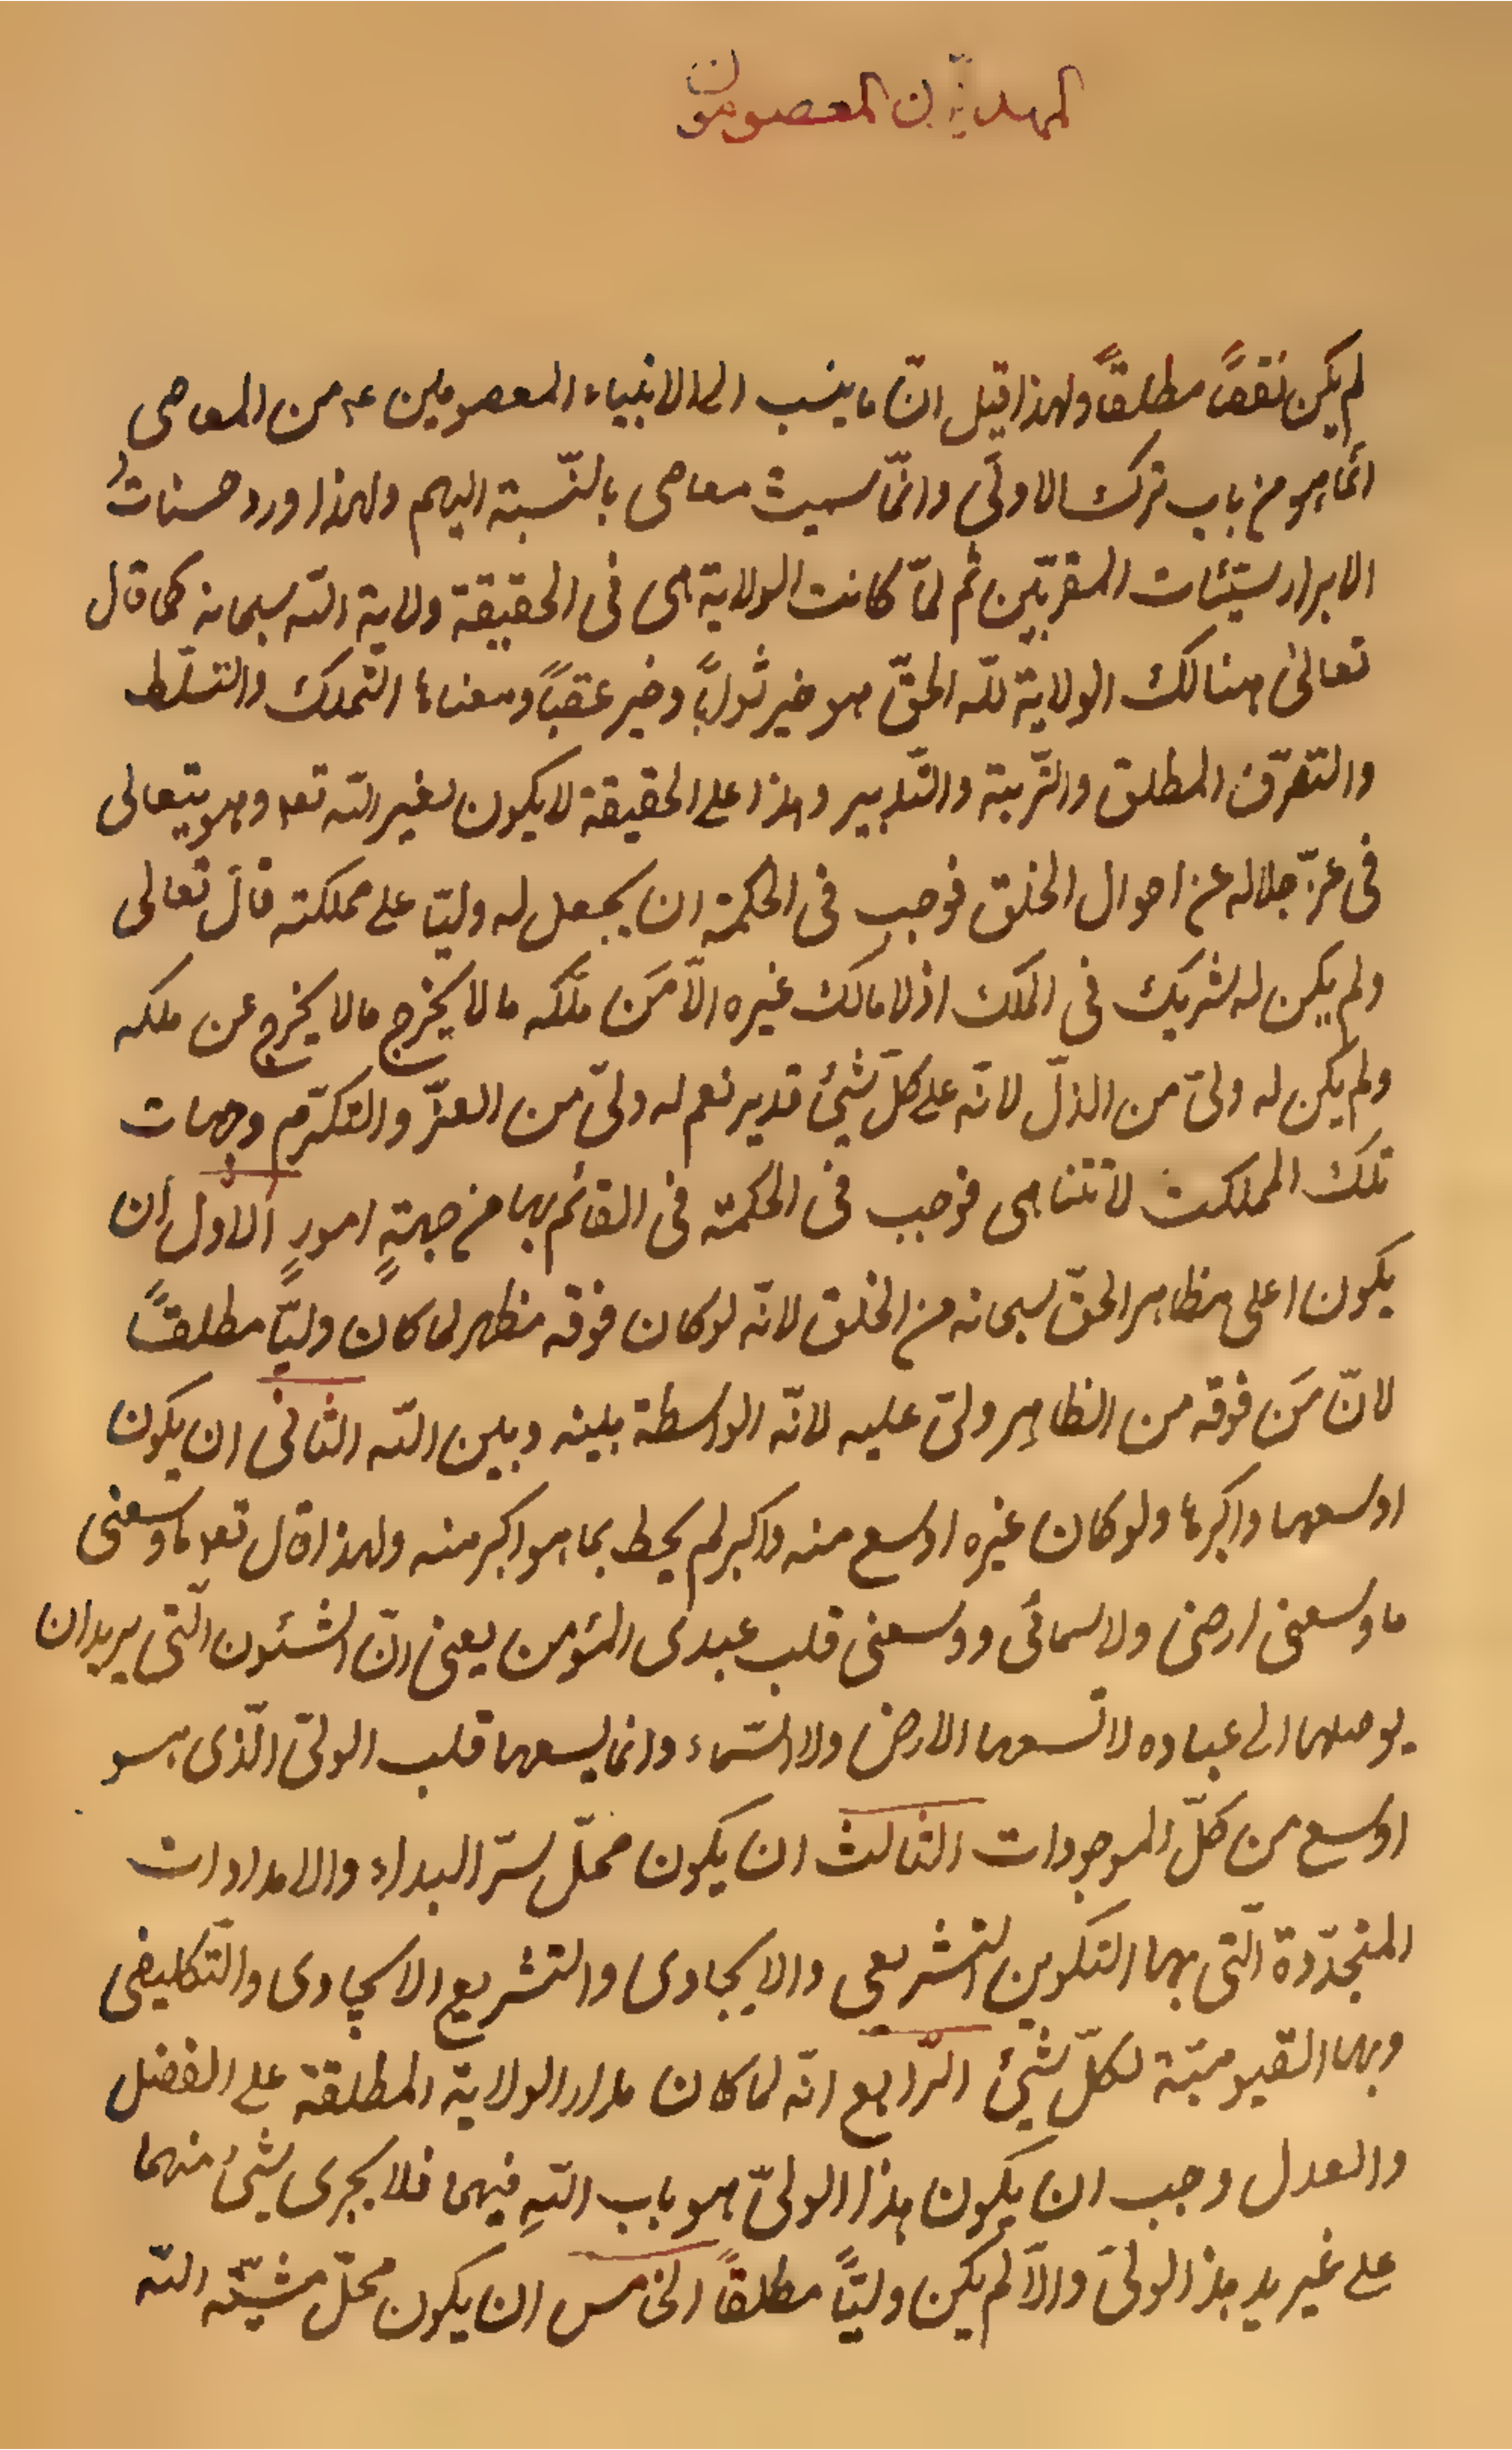 المهديّون المعصومون
لم يكن نقصاً مطلقاً ولهذا قيل انّ ما ينسب الى الانبياء المعصومين ع من المعاصى
انّما هو من باب ترك الاولى وانّما سميت معاصى بالنّسبة اليهم ولهذا ورد حسناتُ
الابرار سيّئات المقربّين ثم لمّا كانت الولاية هى فى الحقيقة ولاية الله سبحانه كما قال
تعالى هنالك الولاية لله الحقّ هو خير ثواباً وخير عقباً ومعناها التملك والتسلّط
والتصّرف المطلق والتّربية والتّدبير وهذا على الحقيقة لا يكون لغير الله تعا وهو يتعالى
فى عزّ جلاله عن احوال الخلق فوجب فى الحكمة ان يجعل له وليّا على مملكته قال تعالى
ولم يكن له شريك فى الملك اذ لا مالك غيره الّا مَن ملّكه ما لا يخرج ما لا يخرج عن ملكه
ولم يكن له ولىّ من الذلّ لانّه على كلّ شئ قدير نعم له ولىّ من العزّ والتكرّم وجهات
تلك المملكت لا تتناهى فوجب فى الحكمة فى القائم بها من جهةٍ امورٍ الاوّل ان
يكون اعلى مظاهر الحقّ سبحانه من الخلق لانّه لو كان فوقه مظهر لما كان وليّاً مطلقاً
لانّ مَن فوقه من الظاهِر ولىّ عليه لانّه الواسطة بينه وبين الله الثانى ان يكون
اوسعها واكبرها ولو كان غيره اوسع منه واكبر لم يحط بما هو اكبر منه ولهذا قال تعا ما وسعنى
ما وسعنى ارضى ولا سمائى ووسعنى قلب عبدى المؤمن يعنى انّ الشئون الّتى يريد ان
يوصلها الى عباده لا تسعها الارض ولا السّماء وانما يسعها قلب الولىّ الّذى هو
اوسع من كلّ الموجودات الثالث ان يكون محلّ سرّ البداء والامدادات
المتجدّدة الّتى بها التكوين التشريعى والايجادى والتشريع الايجادى والتّكليفى
وبها القيوميّة لكلّ شئ الرّابع انّه لما كان مدار الولاية المطلقة على الفضل
والعدل وجب ان يكون هذا الولىّ هو باب اللهِ فيهما فلا يجرى شئ منهما
على غير يد هذا الولىّ والّا لم يكن وليّاً مطلقاً الخامس ان يكون محلّ مشيّة الله